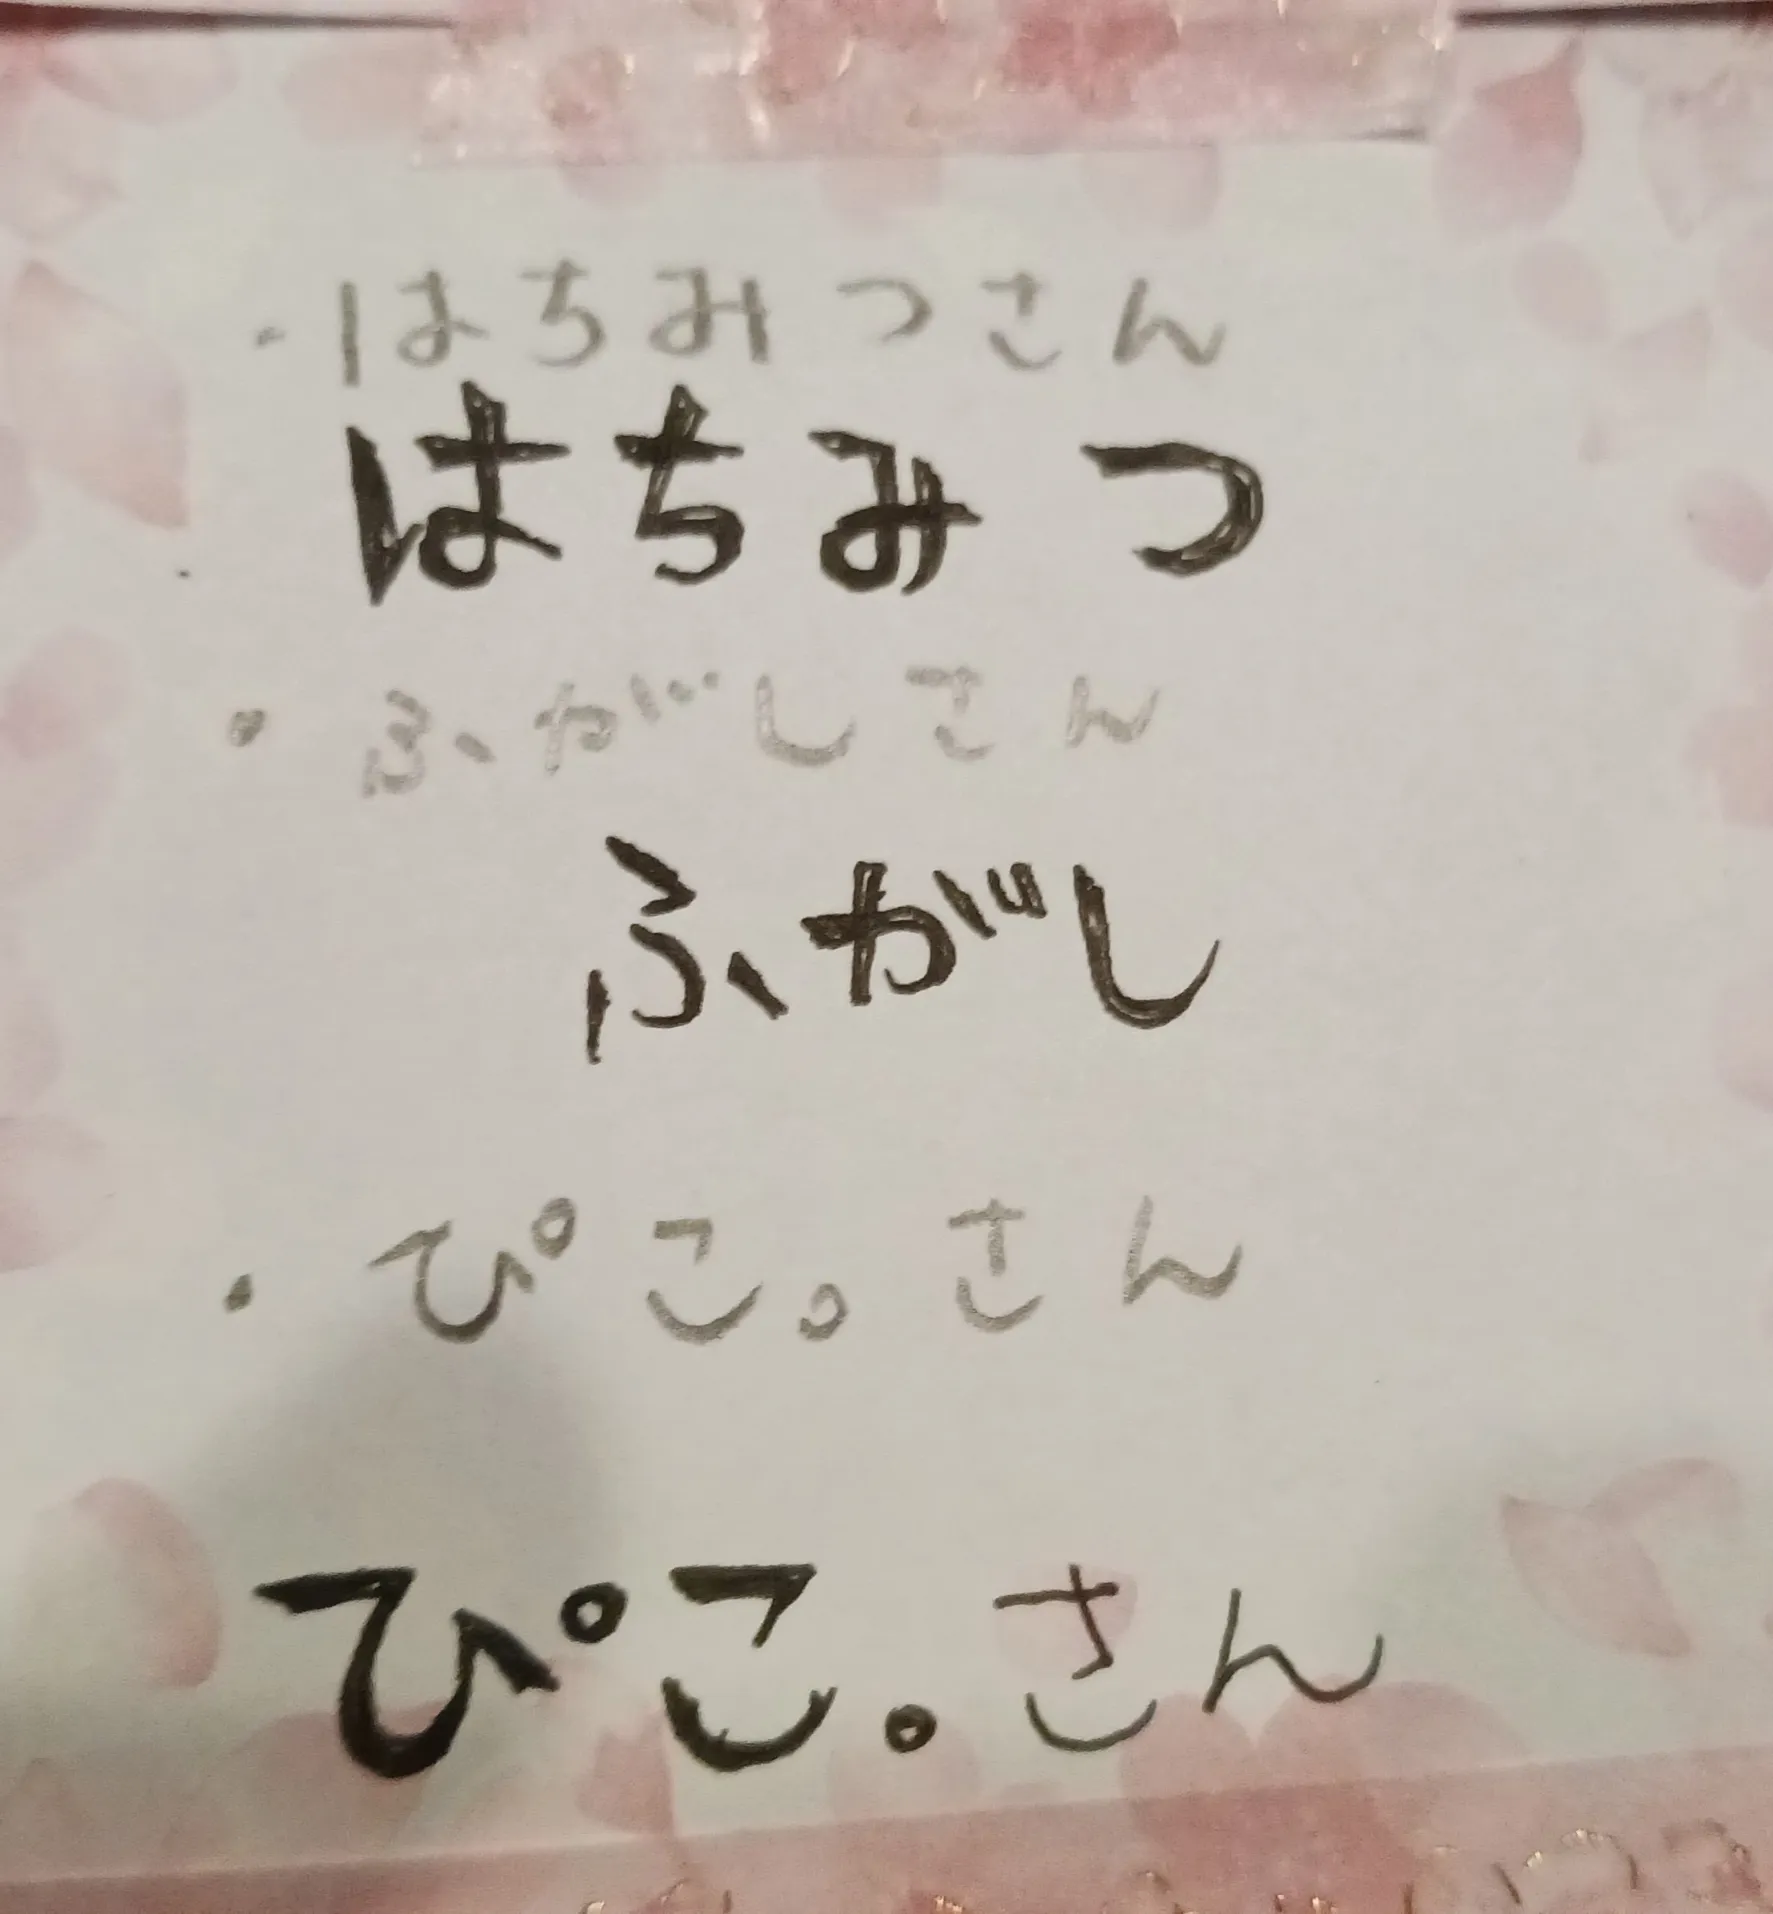 ・はちみつさん
はちみつ
・ふがしさん
ふがし
・ぴこ。さん
ぴこ。さん